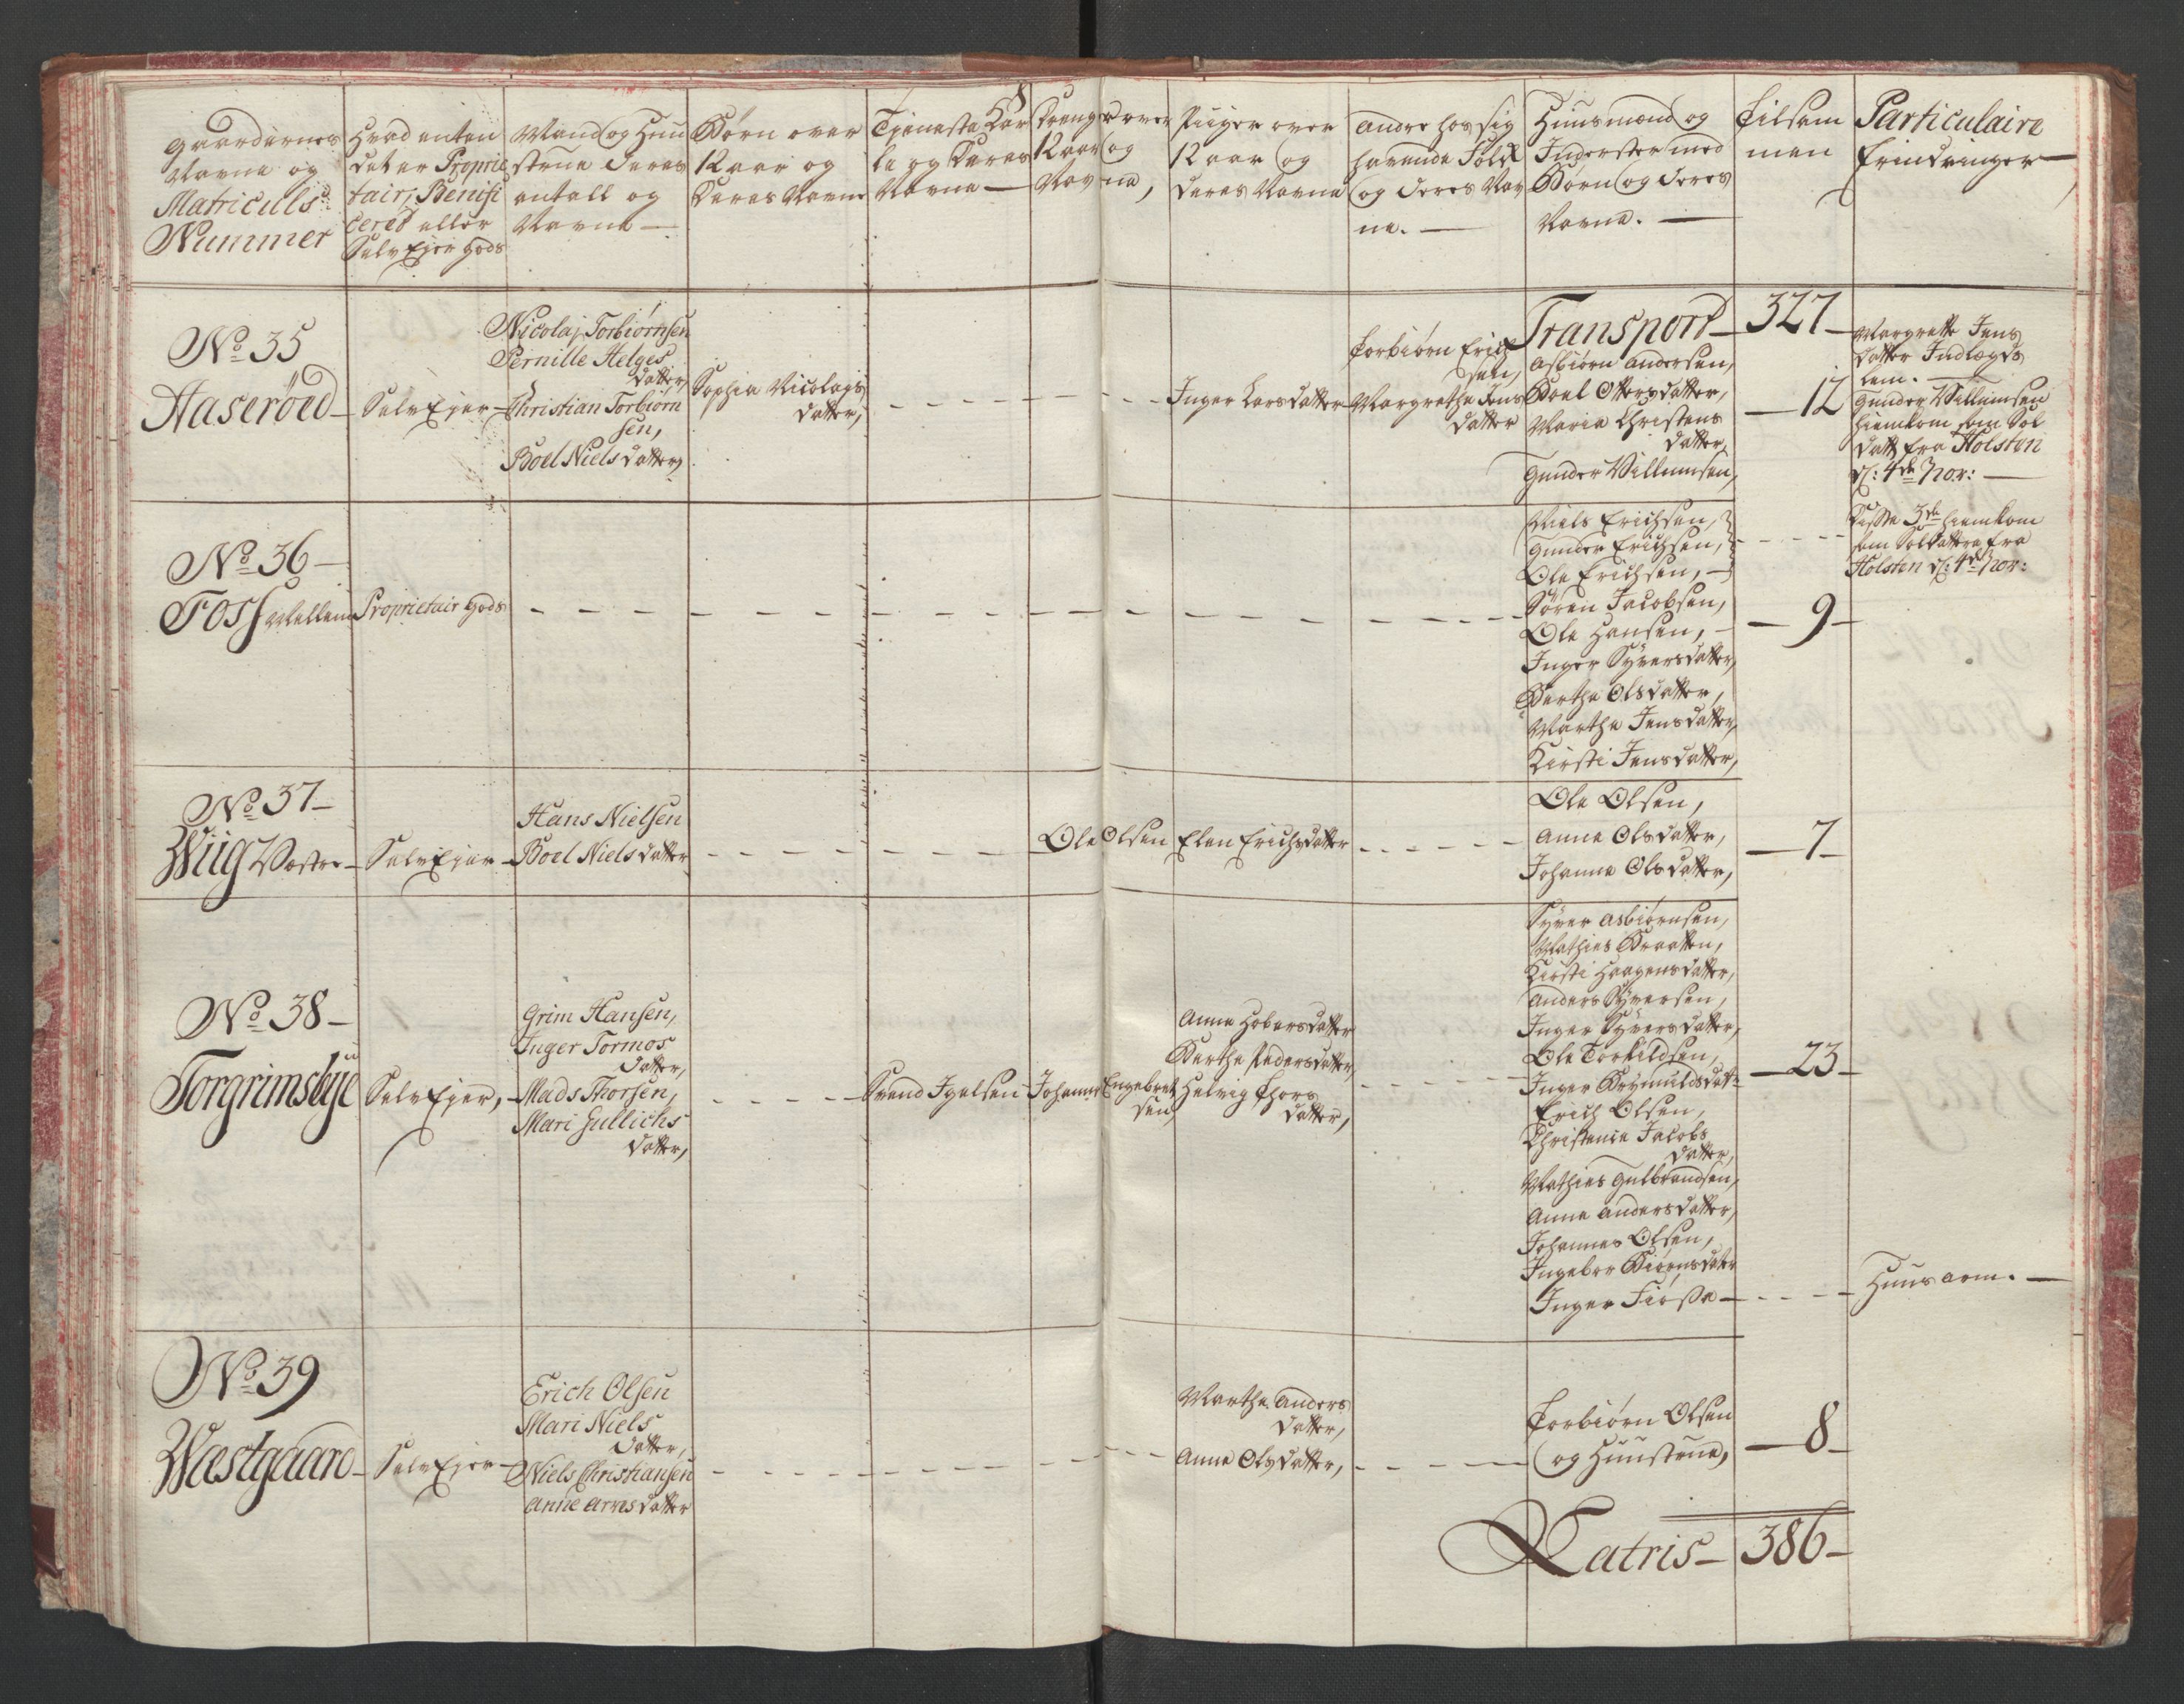 Gaardernes
Navne og
Matriculs
Nummer
Hvad enten
det er Proprie
tair, Benifi
ceret eller
Selv Ejer Gods
Mand og Huu
strue deres
antall og
Navne —
Børn over
12 aar og
deres Navne
Tjeneste Kar
le og deres
Navne —
Drenge over
12 aar og
Navne,
Piiger over
12 aar og
deres Navne
Andre hos sig
havende Folk
og deres Nav
ne. —
Huusmænd og
Inderster med
Børn og deres
Navne. —
Tilsam
men
Particulaire
Erindringer —
Transport — 327 —
No 35
Haseröed —
Selv Ejer —
Nicolaj Torbiørnsen
Pernille Helges
datter,
Christian Torbiørn
sen,
Boel Niels datter,
Sophia Nicolajs
datter,
Inger Larsdatter
Torbiørn Erich
sen,
Margrethe Jens
datter
Asbiørn Andersen,
Boel Ottersdatter,
Maria Christens
datter,
Gunder Villumsen,
— 12
Margrette Jens
datter Indlægds
lem. —
Gunder Villumsen
hiemkom som Sol
datt fra Holsten
d: 4de Nov: —
No 36 —
Foss Mellem
Proprietair Gods
Niels Erichsen,
Gunder Erichsen,
Ole Erichsen, —
Søren Jacobsen,
Ole Hansen, —
Inger Syversdatter,
Berthe Olsdatter,
Marthe Jensdatter,
Kirsti Jensdatter,
— 9 —
Disse 3de hiemkom
som Soldattere fra
Holsten d: 4de Nov:
No 37 —
Wiig Vestre —
Selv Ejer —
Hans Nielsen
Boel Niels datter
Ole Olsen
Elen Erichsdatter
Ole Olsen,
Anne Olsdatter,
Johanne Olsdatter,
— 7 —
No 38 —
Torgrimsbye
Selv Ejer, —
Grim Hansen,
Inger Tormos
datter,
Mads Thorsen,
Mari Gullichs
datter,
Svend Igelsen
Johannes Engebret
sen,
Anne Hobersdatter
Berthe Pedersdatter,
Helvig Thors
datter,
Syver Asbiørnsen,
Mathies Braatten,
Kirsti Haagensdatter,
Anders Syversen,
Inger Syversdatter,
Ole Torkildsen,
Inger Brynnuldsdatr
Erich Olsen,
Christence Jacobs
datter,
Mathies Gulbrandsen,
Anne Andersdatter,
Johannes Olsen,
Ingebor Biørnsdatter
Inger —
— 23 —
Huusarm. —
No 39
Wæstgaard —
Selv Ejer —
Erich Olsen
Mari Niels
datter,
Niels Christiansen
Anne Arnesdatter
Marthe Anders
datter,
Anne Olsdatter,
Torbiørn Olsen
og Huustrue,
— 8 —
Latris — 386 —